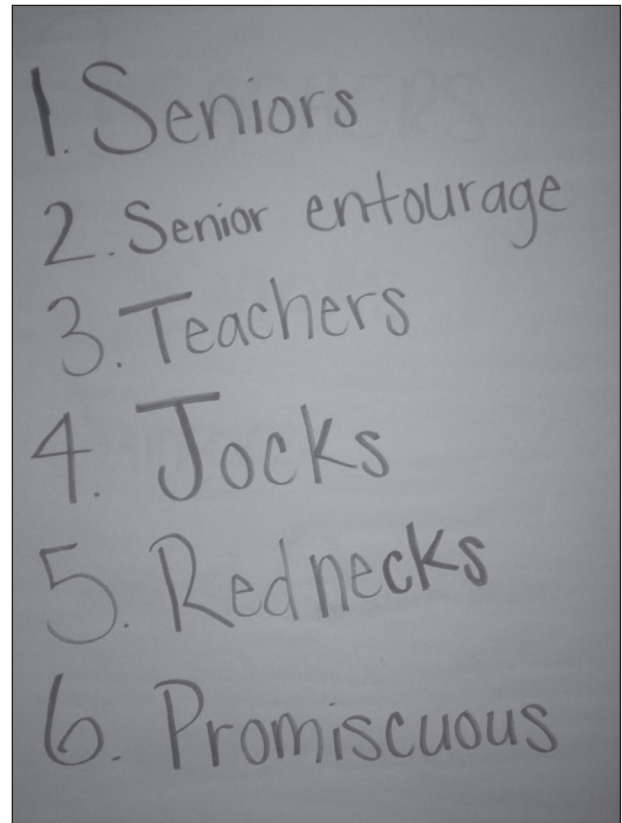 1. Seniors
2. Senior entourage
3. Teachers
4. Jocks
5. Rednecks
6. Promiscuous